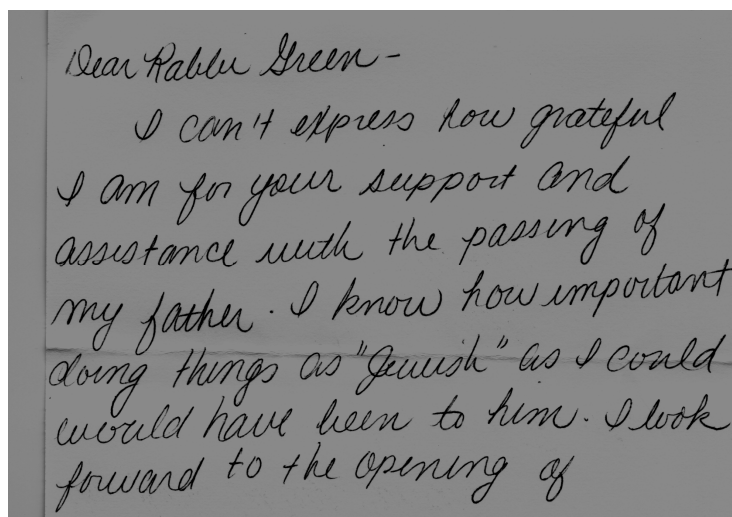 Dear Rabbi Green -
I can't express how grateful
I am for your support and
assistance with the passing of
my father. I know how important
doing things as "Jewish" as I could
would have been to him. I look
forward to the opening of